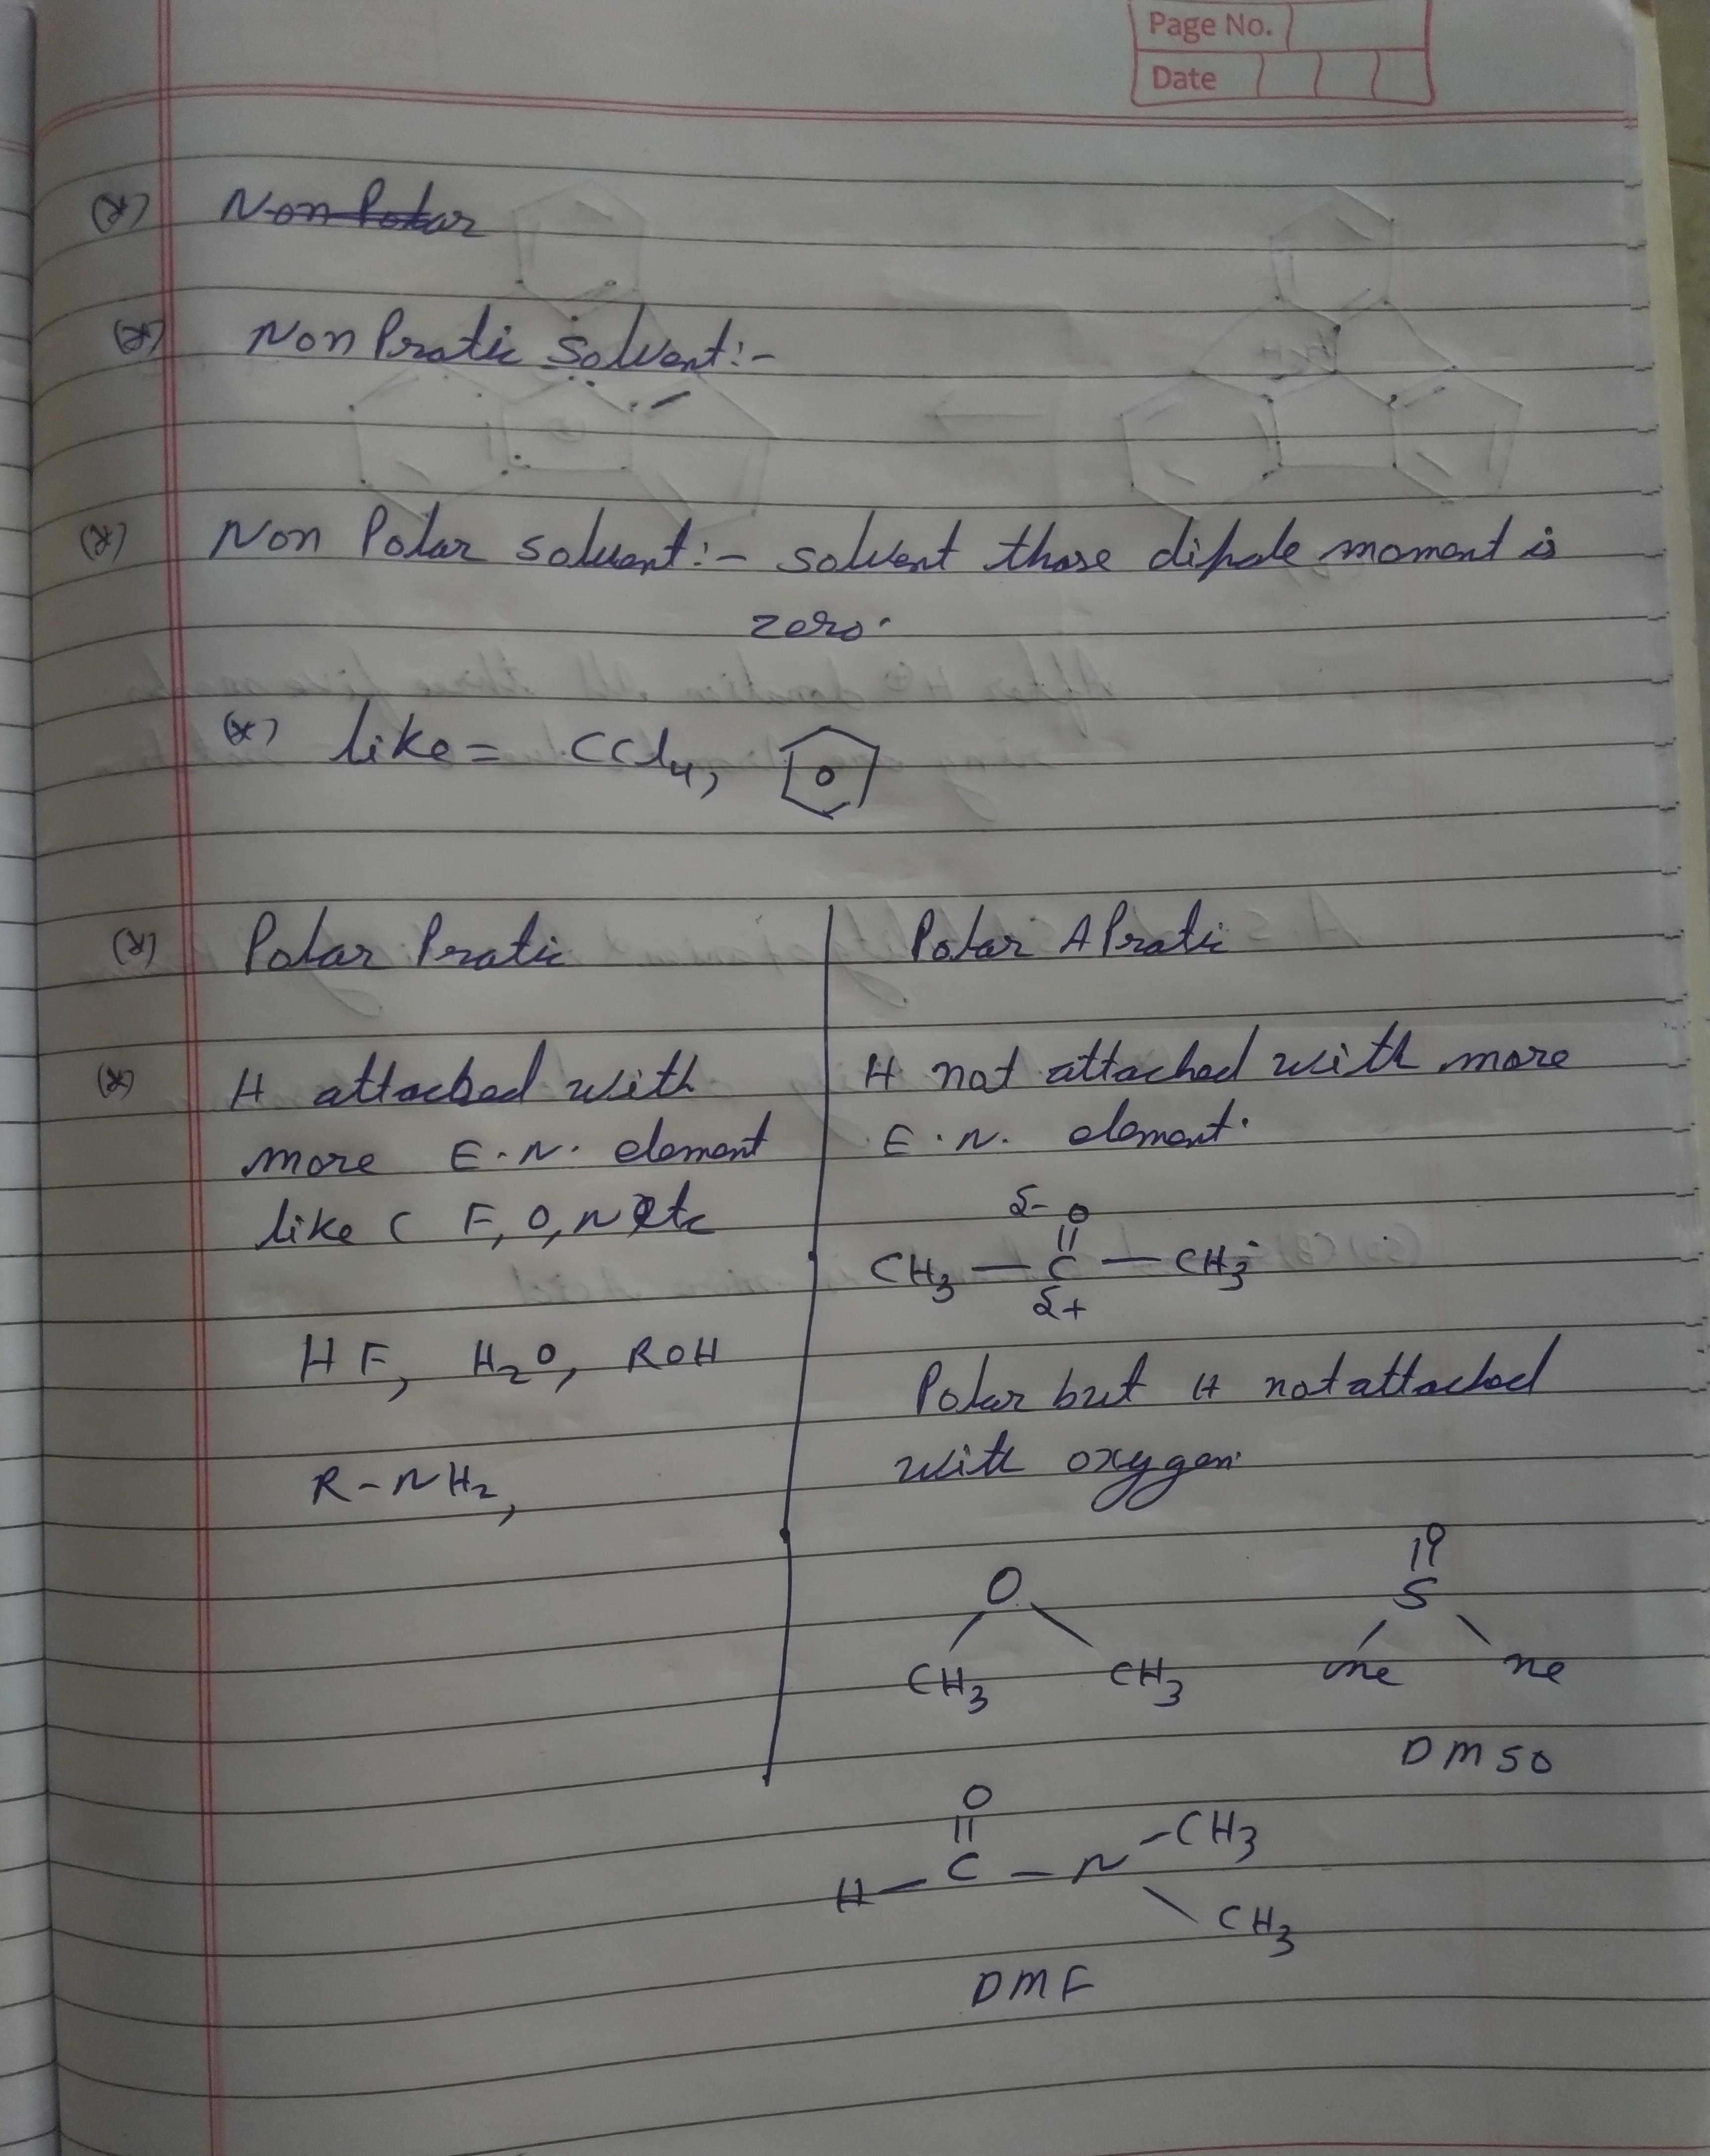 Page No.
Date
(*) Non Polar
(*) Non Protic Solvent:-
(*) Non Polar solvent:- solvent those dipole moment is
zero.
(*) like = CCl4,
(*) Polar Protic
(*) H attached with
more E.N. element
like ( F, O, N etc
HF, H2O, ROH
R-NH2,
Polar A Protic
H not attached with more
E.N. element.
δ- O
CH3 — C — CH3
δ+
Polar but H not attached
with oxygen.
O
CH3 CH3
O
S
me me
DMSO
O
H — C — N — CH3
CH3
DMF